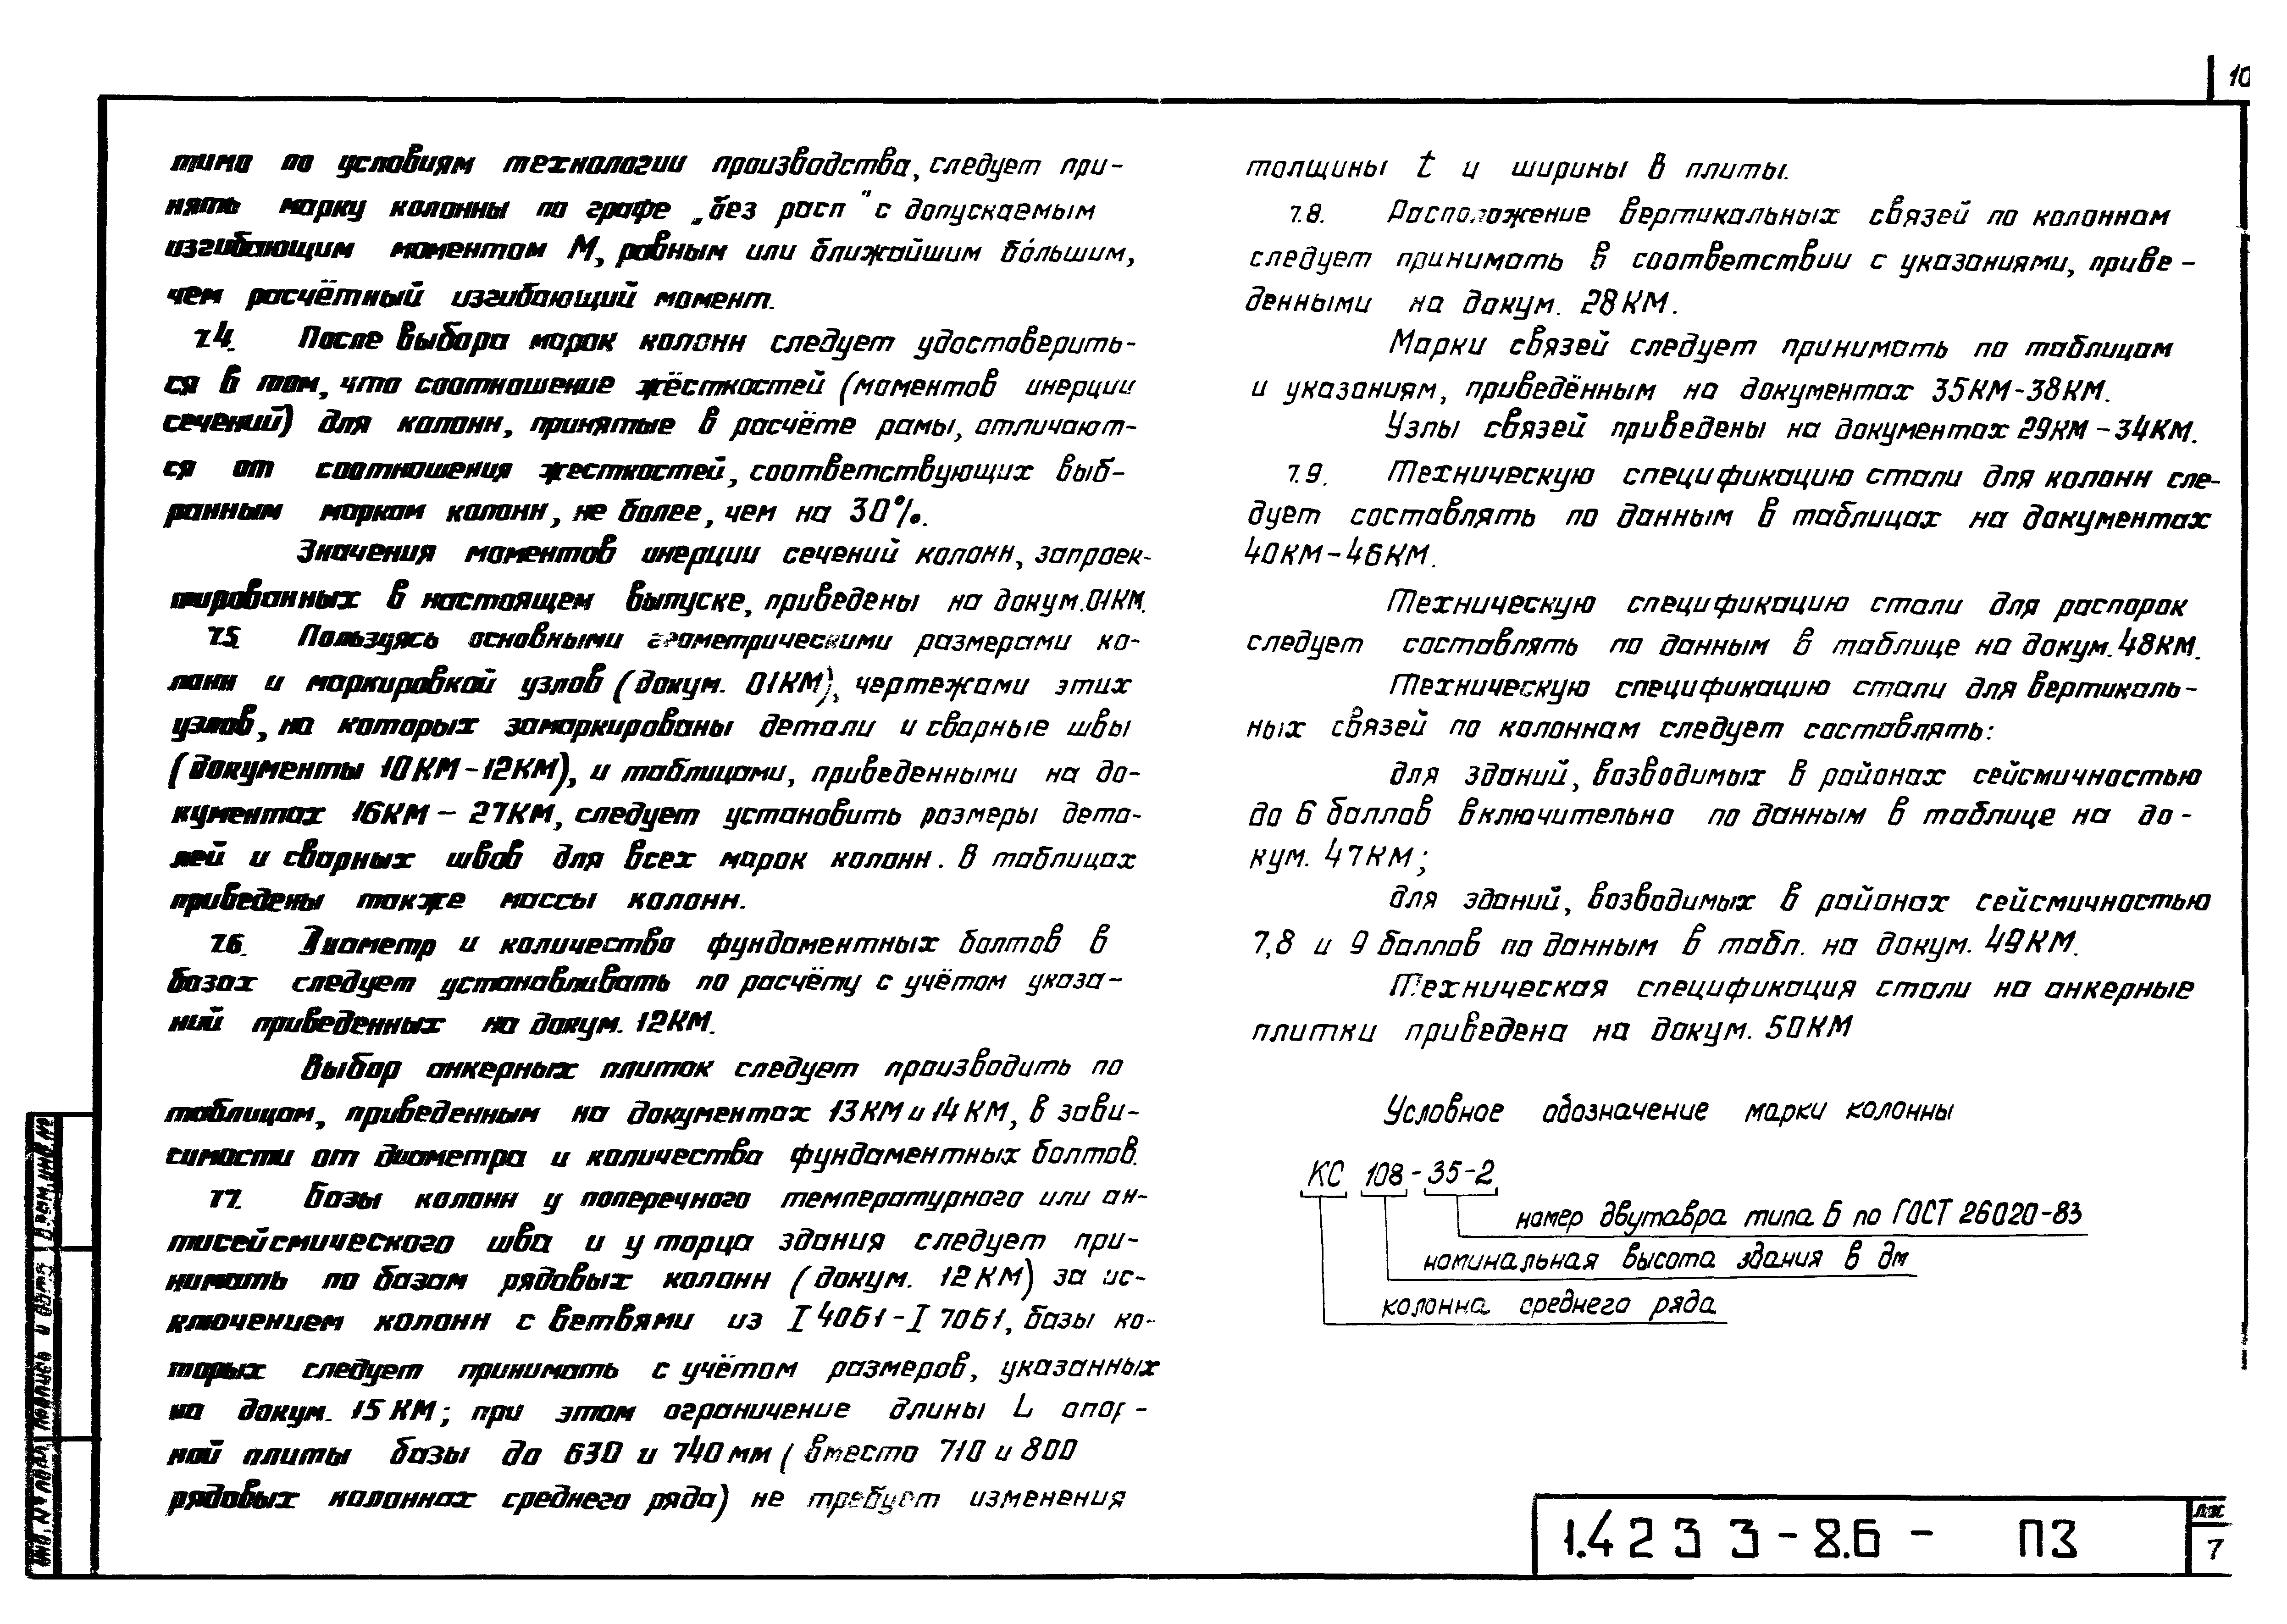 10
тимо по условиям технологии производства, следует при-
нять марку колонны по графе „без расп" с допускаемым
изгибающим моментом М, равным или ближайшим бо́льшим,
чем расчётный изгибающий момент.
7.4. После выбора марок колонн следует удостоверить-
ся в том, что соотношение жёсткостей (моментов инерции
сечений) для колонн, принятые в расчёте рамы, отличают-
ся от соотношения жесткостей, соответствующих выб-
ранным маркам колонн, не более, чем на 30%.
Значения моментов инерции сечений колонн, запроек-
тированных в настоящем выпуске, приведены на докум. 01КМ.
7.5 Пользуясь основными геометрическими размерами ко-
лонн и маркировкой узлов (докум. 01КМ), чертежами этих
узлов, на которых замаркированы детали и сварные швы
(документы 10КМ-12КМ), и таблицами, приведенными на до-
кументах 16КМ - 27КМ, следует установить размеры дета-
лей и сварных швов для всех марок колонн. В таблицах
приведены также массы колонн.
7.6. Диаметр и количество фундаментных болтов в
базах следует устанавливать по расчёту с учётом указа-
ний приведенных на докум. 12КМ.
Выбор анкерных плиток следует производить по
таблицам, приведенным на документах 13КМ и 14КМ, в зави-
симости от диаметра и количества фундаментных болтов.
7.7. Базы колонн у поперечного температурного или ан-
тисейсмического шва и у торца здания следует при-
нимать по базам рядовых колонн (докум. 12КМ) за ис-
ключением колонн с ветвями из I 40Б1-I 70Б1, базы ко-
торых следует принимать с учётом размеров, указанных
на докум. 15КМ; при этом ограничение длины L опор-
ной плиты базы до 630 и 740мм (вместо 710 и 800
рядовых колоннах среднего ряда) не требует изменения
толщины t и ширины В плиты.
7.8. Расположение вертикальных связей по колоннам
следует принимать в соответствии с указаниями, приве-
денными на докум. 28КМ.
Марки связей следует принимать по таблицам
и указаниям, приведённым на документах 35КМ-38КМ.
Узлы связей приведены на документах 29КМ-34КМ.
7.9. Техническую спецификацию стали для колонн сле-
дует составлять по данным в таблицах на документах
40КМ-46КМ.
Техническую спецификацию стали для распорок
следует составлять по данным в таблице на докум. 48КМ.
Техническую спецификацию стали для вертикаль-
ных связей по колоннам следует составлять:
для зданий, возводимых в районах сейсмичностью
до 6 баллов включительно по данным в таблице на до-
кум. 47КМ;
для зданий, возводимых в районах сейсмичностью
7,8 и 9 баллов по данным в табл. на докум. 49КМ.
Техническая спецификация стали на анкерные
плитки приведена на докум. 50КМ
Условное обозначение марки колонны
КС 108-35-2
номер двутавра типа Б по ГОСТ 26020-83
номинальная высота здания в дм
колонна среднего ряда
1.423 3-8.6 - ПЗ
7
Инв. № подл. Подпись и дата Взам. инв. №